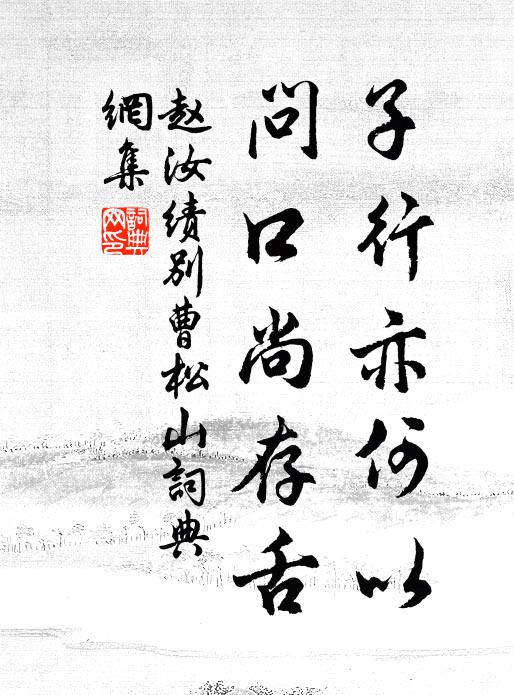 子行亦何以
問口尚存舌
赵汝績别曹松山詞典
網集
詞典
网印